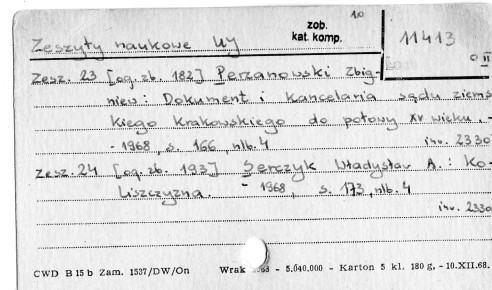 10
zob.
kat. komp.
Zeszyty naukowe UJ
11413
0 II
Zesz. 23 [og. zb. 182] Perzanowski Zbig-
niew: Dokument i kancelaria sądu ziems
kiego krakowskiego do połowy XV wieku. -
- 1968, s. 166, nlb. 4
inv. 2330
Zesz. 24 [og. zb. 193] Serczyk Władysław A.: Ko-
liszczyzna. - 1968, s. 173, nlb. 4
inv. 2330
CWD B 15 b Zam. 1537/DW/On Wrak - 5.040.000 - Karton 5 kl. 180 g, - 10.XII.68.